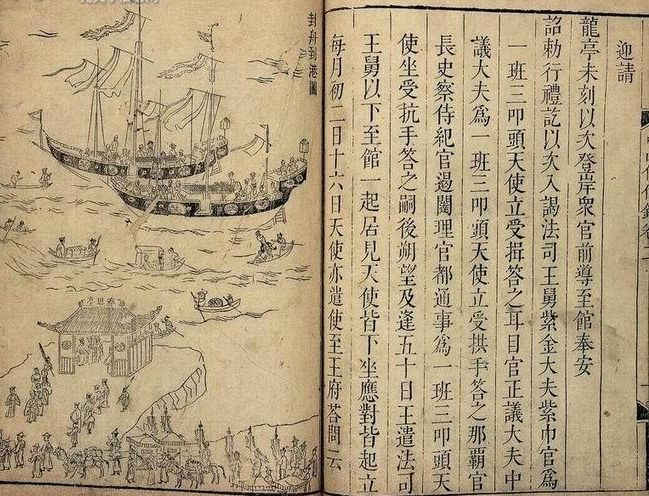 迎請
龍亭未刻以次登岸衆官前導至館奉安
詔勅行禮訖以次入謁法司王舅紫金大夫紫巾官爲
一班三叩頭天使立受揖答之耳目官正議大夫中
議大夫爲一班三叩頭天使立受拱手答之那霸官
長史察侍紀官遏闥理官都通事爲一班三叩頭天
使坐受抗手答之嗣後朔望及逢五十日王遣法司
王舅以下至館一起居見天使皆下坐應對皆起立
每月初二日十六日天使亦遣使至王府荅問云
封舟到港圖